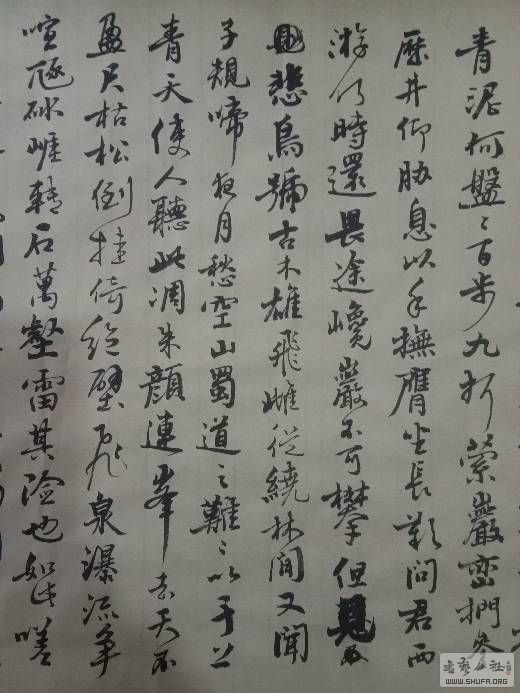 青泥何盤〻百步九折縈巖巒捫參
歷井仰胁息以手撫膺坐長歎問君西
游何時還畏途巉巖不可攀但
悲鳥號古木雄飛雌從繞林間又聞
子規啼夜月愁空山蜀道之難〻以于上
青天使人聽此凋朱顏連峯去天不
盈尺枯松倒挂倚絕壁飛泉瀑流爭
喧豗砯崖轉石萬壑雷其險也如此嗟
WWW.SHUFR.ORG